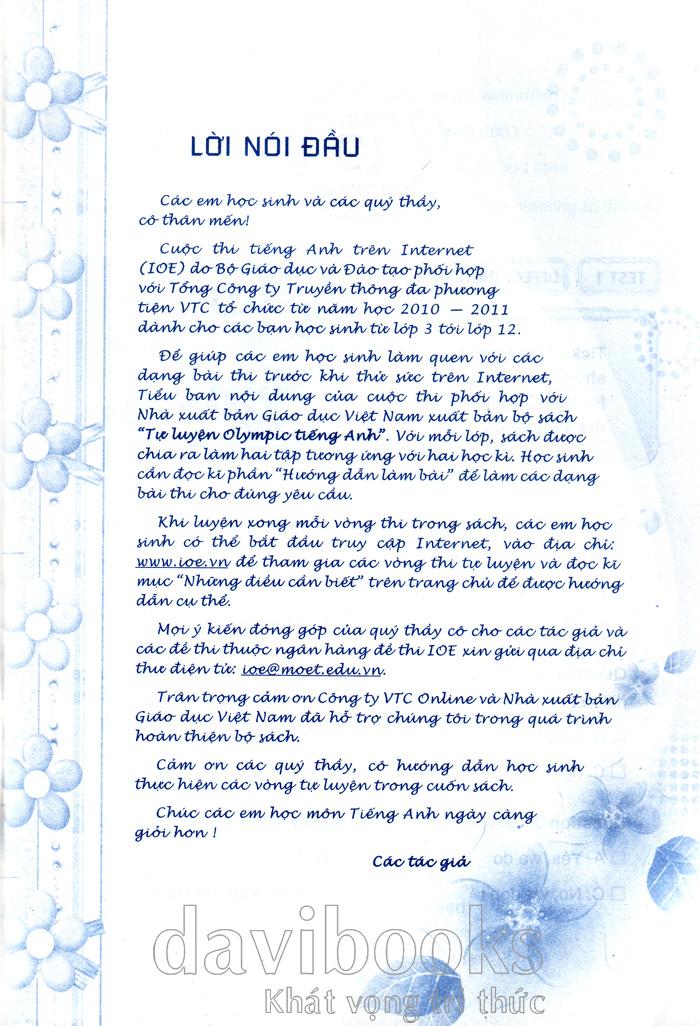 LỜI NÓI ĐẦU
Các em học sinh và các quý thầy,
cô thân mến!
Cuộc thi tiếng Anh trên Internet
(IOE) do Bộ Giáo dục và Đào tạo phối hợp
với Tổng Công ty Truyền thông đa phương
tiện VTC tổ chức từ năm học 2010 – 2011
dành cho các bạn học sinh từ lớp 3 tới lớp 12.
Để giúp các em học sinh làm quen với các
dạng bài thi trước khi thử sức trên Internet,
Tiểu ban nội dung của cuộc thi phối hợp với
Nhà xuất bản Giáo dục Việt Nam xuất bản bộ sách
“Tự luyện Olympic tiếng Anh”. Với mỗi lớp, sách được
chia ra làm hai tập tương ứng với hai học kì. Học sinh
cần đọc kĩ phần “Hướng dẫn làm bài” để làm các dạng
bài thi cho đúng yêu cầu.
Khi luyện xong mỗi vòng thi trong sách, các em học
sinh có thể bắt đầu truy cập Internet, vào địa chỉ:
www.ioe.vn để tham gia các vòng thi tự luyện và đọc kĩ
mục “Những điều cần biết” trên trang chủ để được hướng
dẫn cụ thể.
Mọi ý kiến đóng góp của quý thầy cô cho các tác giả và
các đề thi thuộc ngân hàng đề thi IOE xin gửi qua địa chỉ
thư điện tử: ioe@moet.edu.vn.
Trân trọng cảm ơn Công ty VTC Online và Nhà xuất bản
Giáo dục Việt Nam đã hỗ trợ chúng tôi trong quá trình
hoàn thiện bộ sách.
Cảm ơn các quý thầy, cô hướng dẫn học sinh
thực hiện các vòng tự luyện trong cuốn sách.
Chúc các em học môn Tiếng Anh ngày càng
giỏi hơn !
Các tác giả
davibooks
Khát vọng tri thức